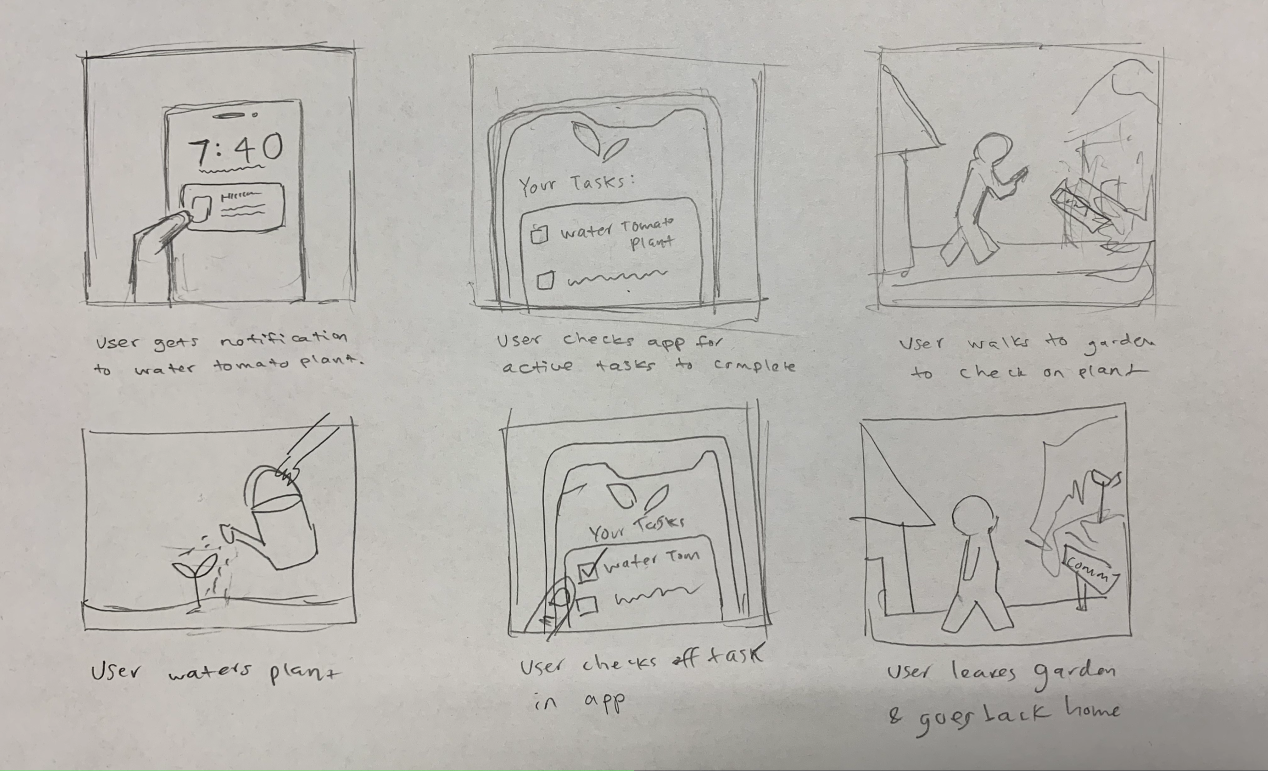 7:40
User gets notification
to water tomato plant.
Your Tasks:
water Tomato
plant
User checks app for
active tasks to complete
User walks to garden
to check on plant
User waters plant
Your Tasks
water Tom
User checks off task
in app
comm
User leaves garden
& goes back home